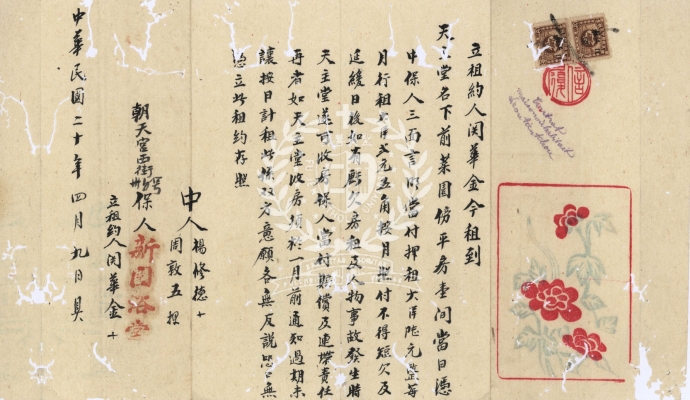 立租約人闵華金今租到
天主堂名下前菜園傍平房壹間當日憑
中保人三面言明當付押租大洋陀元整每
月行租大洋弍元五角按月照付不得短欠及
延緩日後如有虧欠房租及人物事故發生時
天主堂遂可收房保人當付賠償及連帶責任
再者如天主堂收房須於一月前通知過期未
讓按日計租此係双方意願各無反說恐口無
憑立此租約存照
中人 楊修德 十
周敦五 押
朝天宮西街
保人 新園浴堂
立租約人闵華金 十
中華民國二十年四月九日具